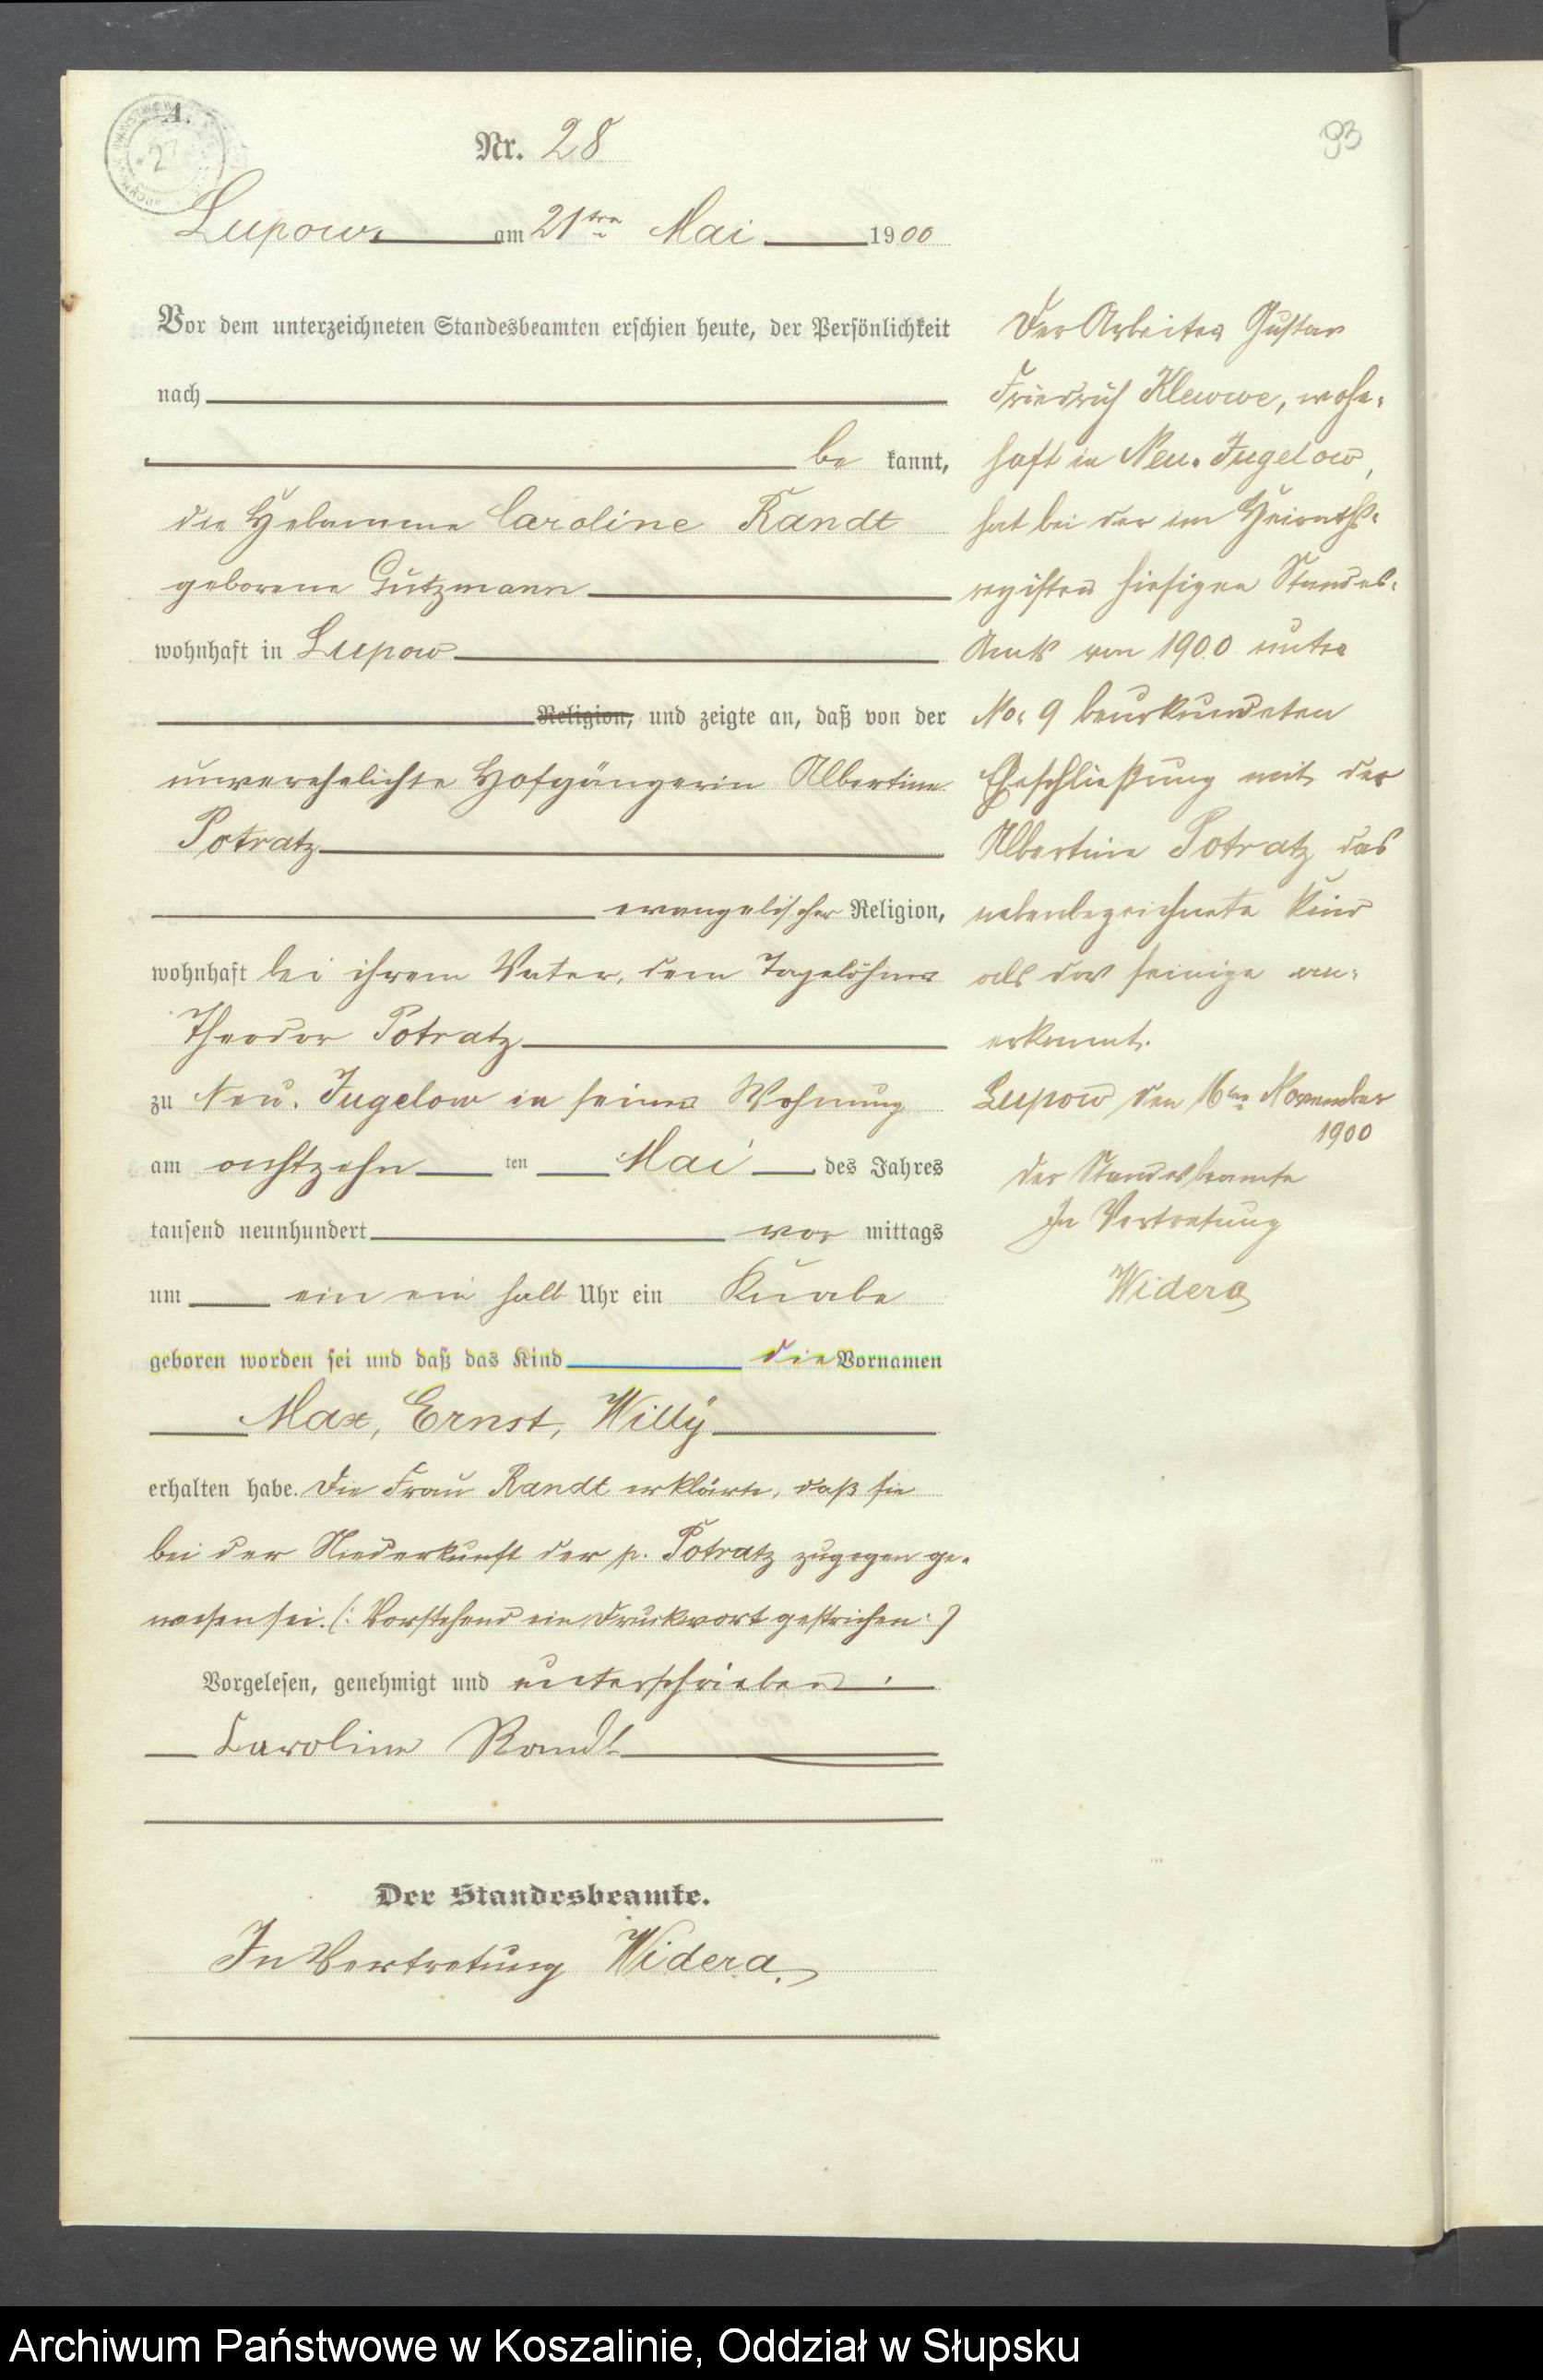 A.
93
Nr. 28
Lupow, am 21ten Mai 1900
Vor dem unterzeichneten Standesbeamten erschien heute, der Persönlichkeit
nach
be kannt,
die Hebamme Caroline Randt
geborene Gutzmann
wohnhaft in Lupow
Religion, und zeigte an, daß von der
unverehelichte Hofgängerin Albertine
Potratz
evangelischer Religion,
wohnhaft bei ihrem Vater, dem Tagelöhner
Theodor Potratz
zu Neu. Jugelow in seiner Wohnung
am achtzehn ten Mai des Jahres
tausend neunhundert vor mittags
um ein ein halb Uhr ein Knabe
geboren worden sei und daß das Kind die Vornamen
Max, Ernst, Willÿ
erhalten habe. Die Frau Randt erklärte, daß sie
bei der Niederkunft der p. Potratz zugegen ge-
wesen sei. (: Vorstehend ein Druckwort gestrichen :)
Vorgelesen, genehmigt und unterschrieben:
Caroline Randt
Der Standesbeamte.
In Vertretung Widera.
Der Arbeiter Gustav
Friedrich Klewwe, wohn-
haft in Neu-Jugelow,
hat bei der im Heiraths-
register hiesigen Standes-
Amts von 1900 unter
No. 9 beurkundeten
Eheschließung mit der
Albertine Potratz das
nebenbezeichnete Kind
als das seinige an-
erkannt.
Lupow den 16ten November
1900
Der Standesbeamte
In Vertretung
Widera
Archiwum Państwowe w Koszalinie, Oddział w Słupsku